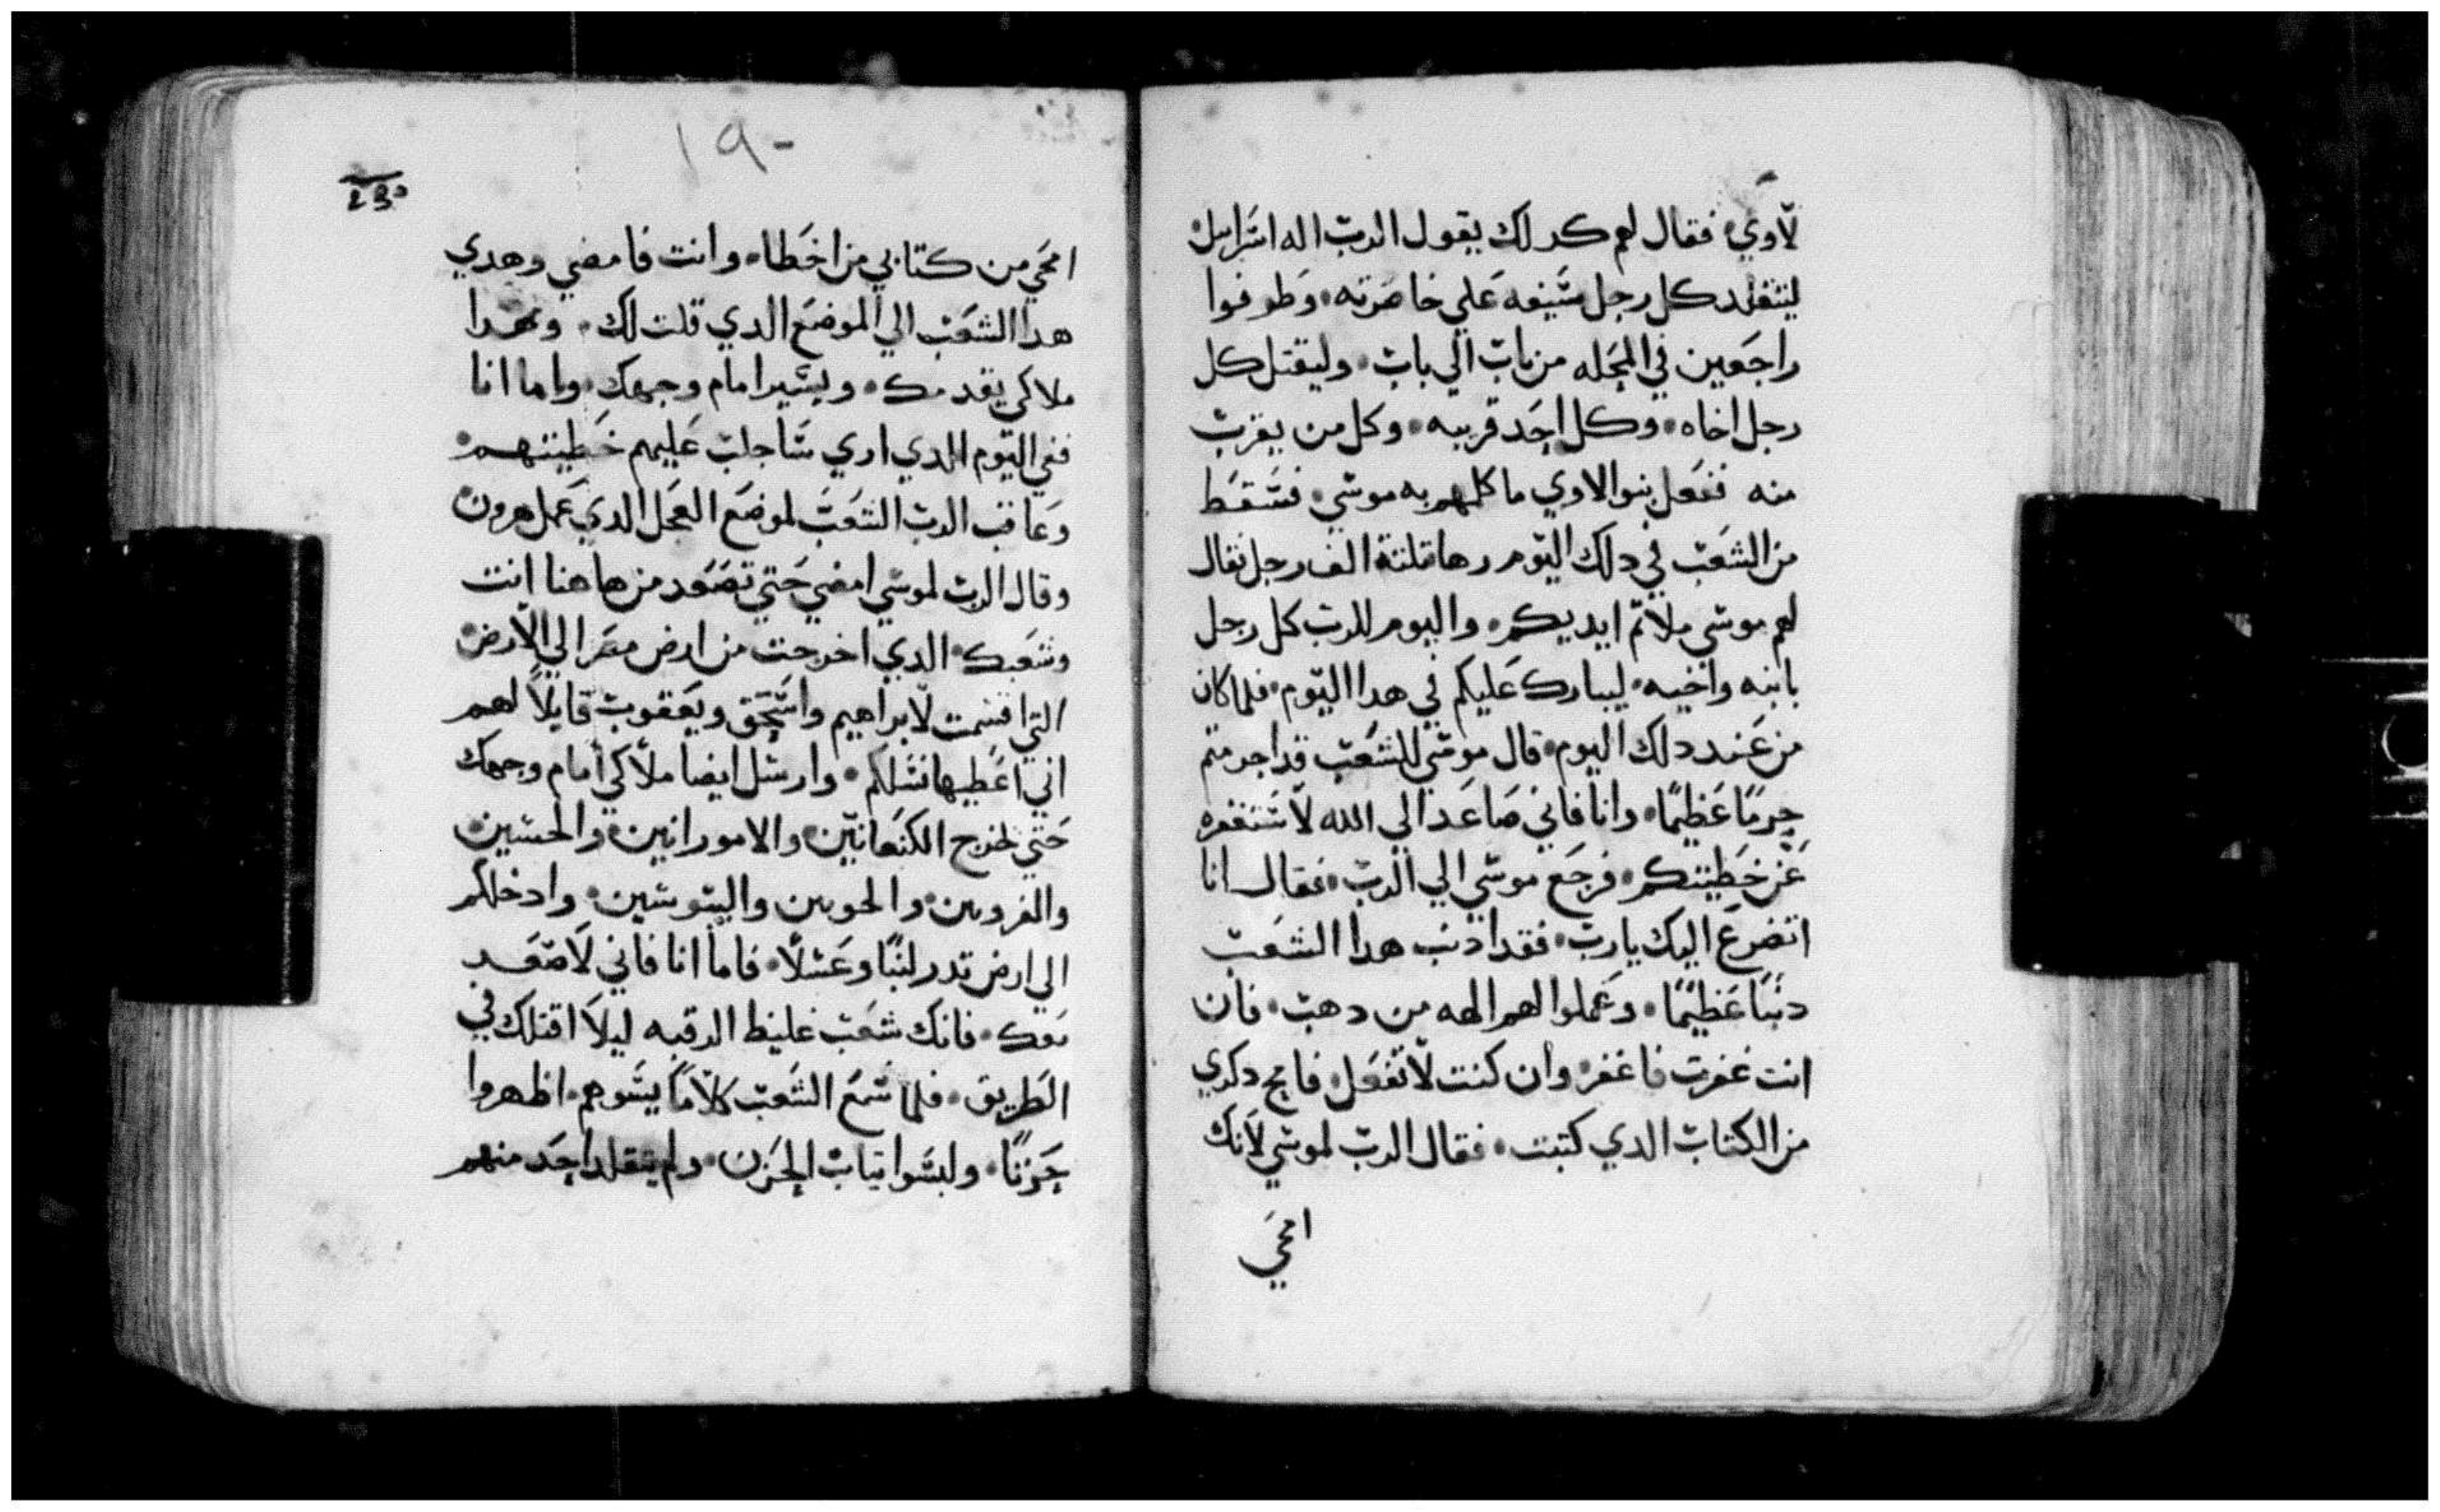 لاوي۰ فقال لهم كدلك يقول الرب اله اسراييل۰
ليتقلد كل رجل سيفه علي خاصرته۰ وطوفوا
راجعين في المحله من باب الي باب۰ وليقتل كل
رجل اخاه۰ وكل احد قريبه۰ وكل من يقرب
منه ففعل بنوا لاوي ما كلمهم به موسي۰ فسقط
من الشعب في دلك اليوم رها تلتة الف رجل فقال
لهم موسي ملاتم ايديكم۰ واليوم للرب كل رجل
بابنه واخيه۰ ليبارك عليكم في هدا اليوم۰ فلما كان
من عند دلك اليوم۰ قال موسي للشعب قد اجرمتم
جرمًا عظيمًا۰ وانا فاني صاعد الي الله لاستغفره
عن خطيتكم۰ فرجع موسي الي الرب۰ فقال انا
اتضرع اليك يارب۰ فقد ادنب هدا الشعب
دنبًا عظيمًا۰ وعملوا لهم الهه من دهب۰ فان
انت غفرت فاغفر۰ وان كنت لا تفعل۰ فامح دكري
من الكتاب الدي كتبت۰ فقال الرب لموسي لانك
امحي
١٩٠
230
امحي من كتابي من اخطا۰ وانت فامضي وهدي
هدا الشعب الي الموضع الدي قلت لك۰ وهدا
ملاكي يقدمك۰ ويسير امام وجهك۰ واما انا
ففي اليوم الدي اري ساجلب عليهم خطيتهم۰
وعاقب الرب الشعب لموضع العجل الدي عمل هرون۰
وقال الرب لموسي امضي حتي تصعد من هاهنا انت
وشعبك۰ الدي اخرجت من ارض مصر الي الارض۰
التي اقسمت لابراهيم واسحق ويعقوب قايلاً لهم
اني اعطيها نسلكم۰ وارسل ايضا ملاكي امام وجهك
حتي تخرج الكنعانيين۰ والامورانيين۰ والحسيين۰
والفرويين۰ والحويين واليبوسيين۰ وادخلكم
الي ارض تدر لبنًا وعسلاً۰ فاما انا فاني لا صعد
معك۰ فانك شعب غليظ الرقبه ليلا اقتلك في
الطريق۰ فلما سمع الشعب كلامًا يسوهم۰ اظهروا
حزنًا۰ ولبسوا تياب الحزن۰ ولم يتقلد احد منهم